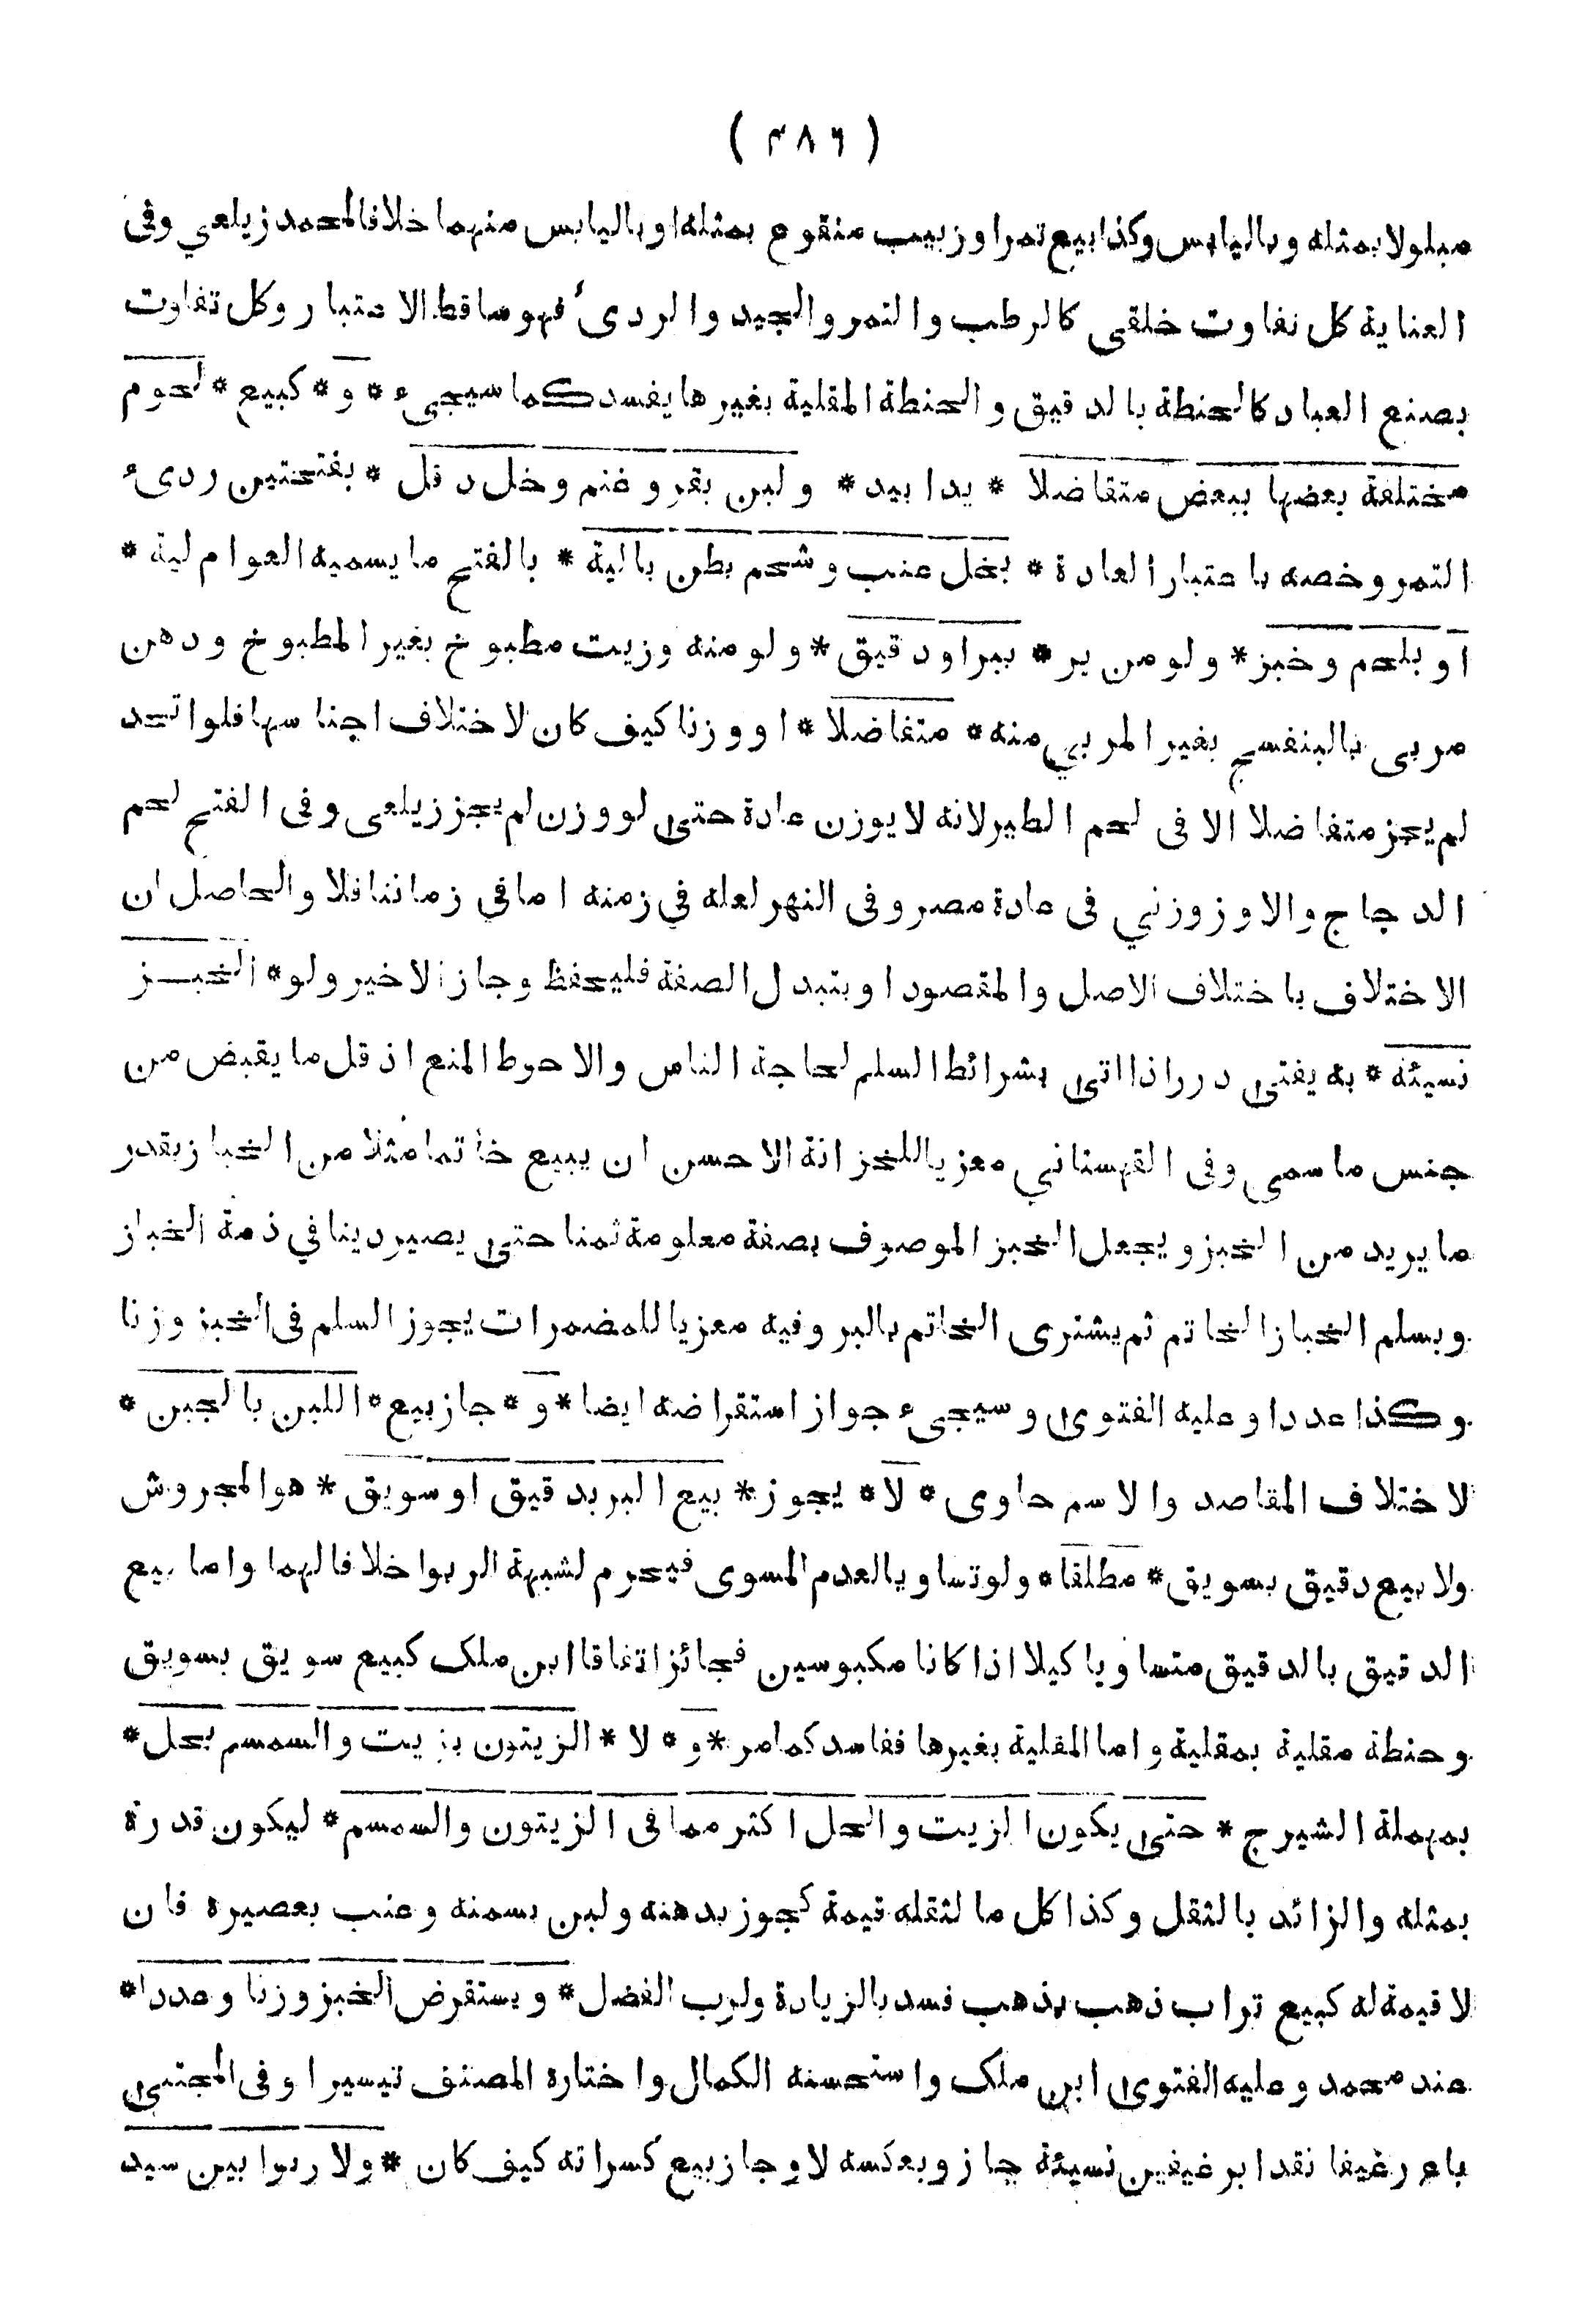 ( ۴۸۶ )
مبلولا بمثله وباليابس وكذا بيع تمر او زبيب منقوع بمثله او باليابس منهما خلافا لمحمد زيلعي وفى
العناية كل تفاوت خلقى كالرطب والتمر والجيد والردىٔ فهو ساقط الاعتبار وكل تفاوت
بصنع العباد كالحنطة بالدقيق والحنطة المقلية بغيرها يفسد كما سيجىء * و * كبيع * لحوم
مختلفة بعضها ببعض متفاضلا * يدا بيد * ولبن بقر وغنم وخل دقل * بفتحتين ردىء
التمر وخصه باعتبار العادة * بخل عنب وشحم بطن بالية * بالفتح ما يسميه العوام لية *
او بلحم وخبز * ولو من بر * ببر او دقيق * ولو منه وزيت مطبوخ بغير المطبوخ ودهن
مربى بالبنفسج بغير المربي منه * متفاضلا * او وزنا كيف كان لاختلاف اجناسها فلو اتحد
لم يجز متفاضلا الا فى لحم الطير لانه لا يوزن عادة حتى لو وزن لم يجز زيلعى وفى الفتح لحم
الدجاج والاوز وزني فى عادة مصر وفى النهر لعله في زمنه اما في زماننا فلا والحاصل ان
الاختلاف باختلاف الاصل والمقصود او بتبدل الصفة فليحفظ وجاز الاخير ولو * الخبـــز
نسيئة * به يفتى درر اذا اتى بشرائط السلم لحاجة الناس والاحوط المنع اذ قل ما يقبض من
جنس ما سمى وفى القهستاني معزيا للخزانة الاحسن ان يبيع خاتما مثلا من الخباز بقدر
ما يريد من الخبز ويجعل الخبز الموصوف بصفة معلومة ثمنا حتى يصير دينا في ذمة الخباز
ويسلم الخباز الخاتم ثم يشترى الخاتم بالبر وفيه معزيا للمضمرات يجوز السلم فى الخبز وزنا
وكذا عددا وعليه الفتوى وسيجىء جواز استقراضه ايضا * و * جاز بيع * اللبن بالجبن *
لاختلاف المقاصد والاسم حاوى * لا * يجوز * بيع البر بدقيق او سويق * هو المجروش
ولا بيع دقيق بسويق * مطلقا * ولو تساويا لعدم المسوى فيحرم لشبهة الربوا خلافا لهما واما بيع
الدقيق بالدقيق متساويا كيلا اذا كانا مكبوسين فجائز اتفاقا ابن ملك كبيع سويق بسويق
وحنطة مقلية بمقلية واما المقلية بغيرها ففاسد كما مر * و * لا * الزيتون بزيت والسمسم بحل *
بمهملة الشيرج * حتى يكون الزيت والحل اكثر مما فى الزيتون والسمسم * ليكون قدرة
بمثله والزائد بالثقل وكذا كل ما لثقله قيمة كجوز بدهنه ولبن بسمنه وعنب بعصيره فان
لا قيمة له كبيع تراب ذهب بذهب فسد بالزيادة ولرب الفضل * ويستقرض الخبز وزنا وعددا *
عند محمد وعليه الفتوى ابن ملك واستحسنه الكمال واختاره المصنف تيسيرا وفى المجتبى
باع رغيفا نقدا برغيفين نسيئة جاز وبعكسه لا وجاز بيع كسراته كيف كان * ولا ربوا بين سيد